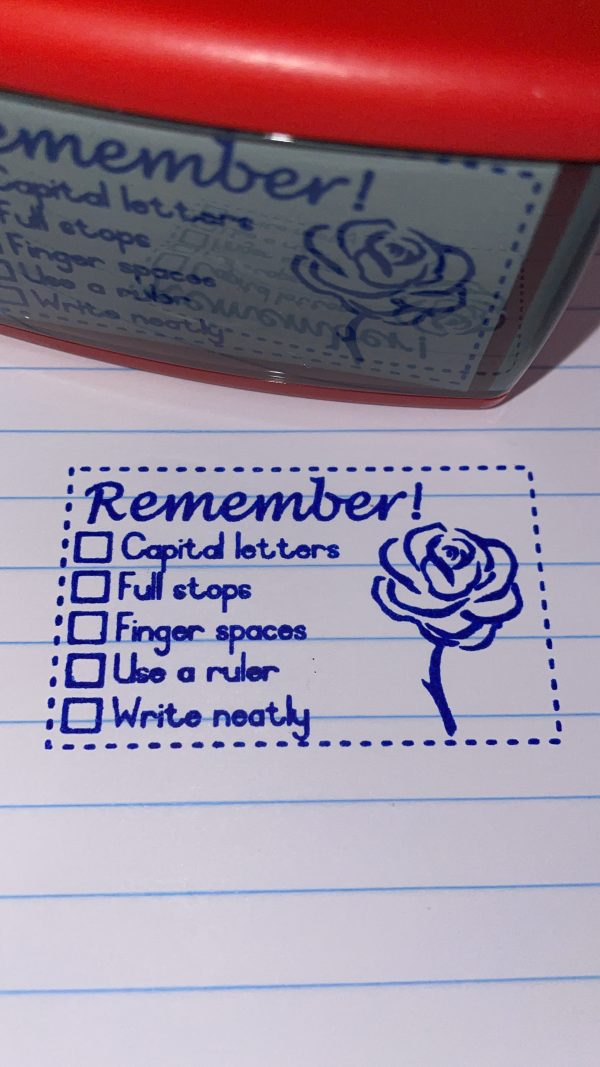 emember!
Capital letters
Full stops
Finger spaces
Use a ruler
Write neatly
Remember!
Capital letters
Full stops
Finger spaces
Use a ruler
Write neatly